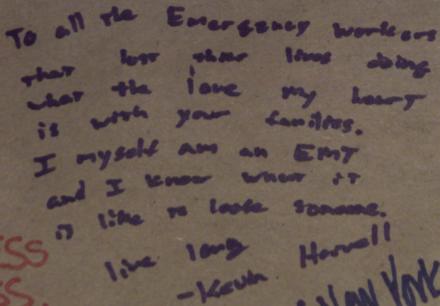 To all the Emergency workers
that lost thier lives doing
what the love my heart
is with your families.
I myself am an EMT
and I know what it
is like to loose someone.
live long
-Kevin Harwell
ESS
SS.
New York